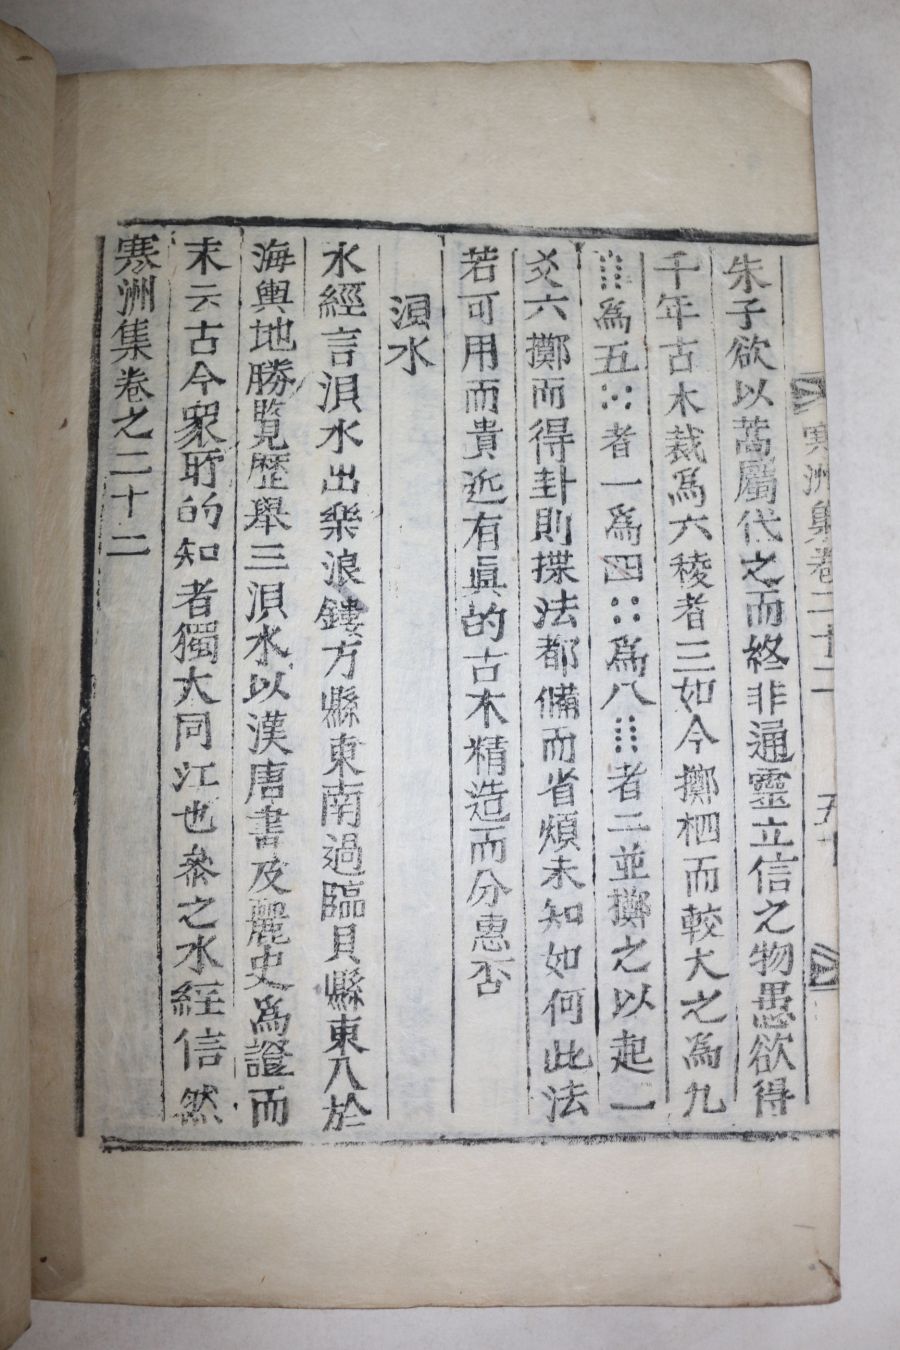 寒洲集卷二十二 五十
朱子欲以蒿屬代之而終非通靈立信之物愚欲得
千年古木裁爲六稜者三如今擲柶而較大之爲九
爲五者一爲四爲八者二並擲之以起一
爻六擲而得卦則揲法都備而省煩未知如何此法
若可用而貴近有眞的古木精造而分惠否
浿水
水經言浿水出樂浪鏤方縣東南過臨貝縣東入於
海輿地勝覽歷舉三浿水以漢唐書及麗史爲證而
末云古今衆聍的知者獨大同江也叅之水經信然
寒洲集卷之二十二